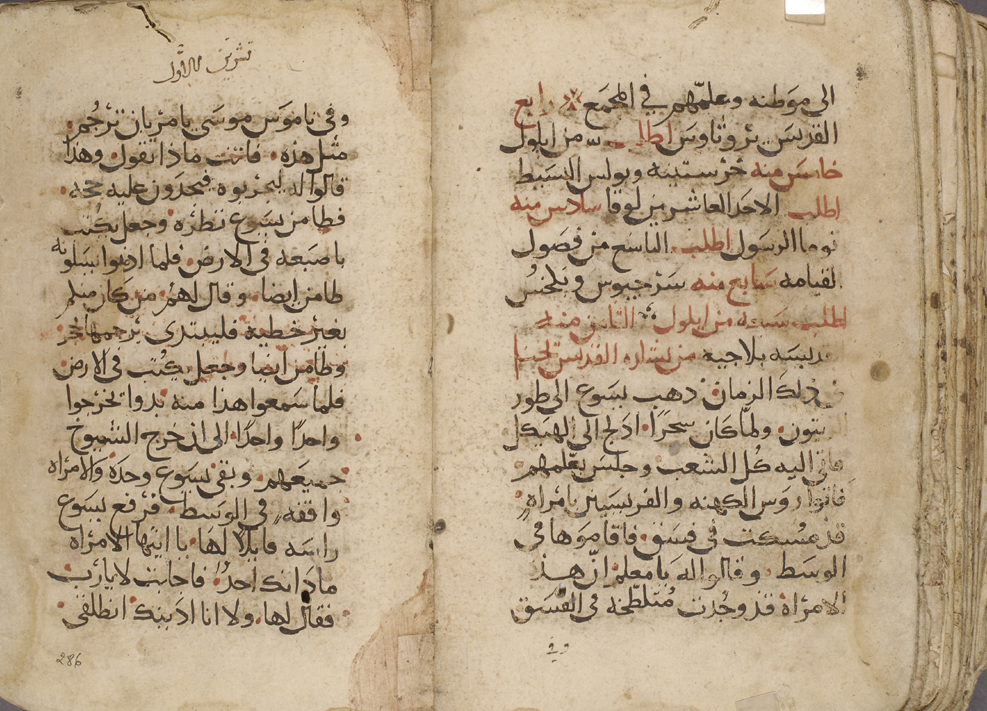 الى موطنه وعلمهم في المجمع ❊ رابع
القديس يروتاوس اطلب سه من ايلول
خامس منه خرستينه وبولس البسيط
اطلب الاحد العاشر من لوقا سادس منه
توما الرسول اطلب التاسع من فصول
القيامه سابع منه سرجيوس وفاخس
اطلب سنه من ايلول الثامن منه
بلاجيه من بشاره القديس يوحنا
ذلك الزمان ذهب يسوع الى طور
يتون ولما كان سحرا ادلج الى الهيكل
فاتى اليه كل الشعب وجلس يعلمهم
فاتوا روس الكهنه والفريسين بامراه
قد مسكت في فسق فاقاموها في
الوسط وقالوا له يا معلم ان هذه
الامراة قد وجدت متلطخه في الفسق
وفي
تشرين الاول
وفي ناموس موسى يامر بان ترجم
مثل هذه فانت ماذا تقول وهذا
قالوا له ليجربوه فيجدون عليه حجه
فطامن يسوع نظره وجعل يكتب
باصبعه في الارض فلما ادمنوا يسلونه
طامن ايضا وقال لهم من كان منكم
بغير خطية فليبتدي يرجمها بحجر
وطامن ايضا وجعل يكتب في الارض
فلما سمعوا هذا منه بدوا يخرجوا
واحدا واحدا الى ان خرج الشيوخ
جميعهم وبقي يسوع وحده والامراه
واقفه في الوسط فرفع يسوع
راسه قايلا لها يا ايتها الامراه
ما دانك احد فاجابت لا يا رب
فقال لها ولا انا ادينك انطلقي
286